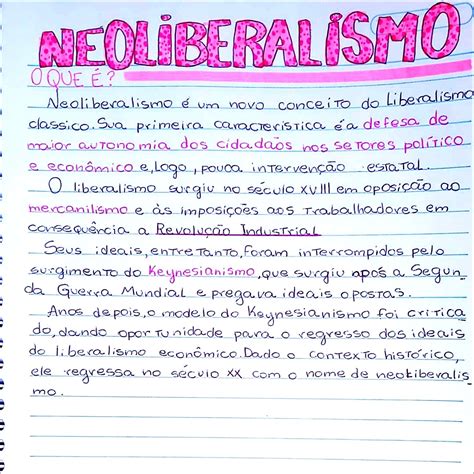 NEOLIBERALISMO
O QUE É?
Neoliberalismo é um novo conceito do Liberalismo
classico. Sua primeira caracteristica é a defesa de
maior autonomia dos cidadãos nos setores político
e econômico e, logo, pouca intervenção estatal.
O liberalismo surgiu no século XVIII em oposição ao
mercanilismo e às imposições aos trabalhadores em
consequência a Revolução Industrial
Seus ideais, entretanto, foram interrompidos pelo
surgimento do Keynesianismo, que surgiu após a Segun
da Guerra Mundial e pregava ideais opostas.
Anos depois, o modelo do Keynesianismo foi critica
do, dando oportunidade para o regresso dos ideais
do liberalismo econômico. Dado o contexto histórico,
ele regressa no século XX com o nome de neoliberalis
mo.